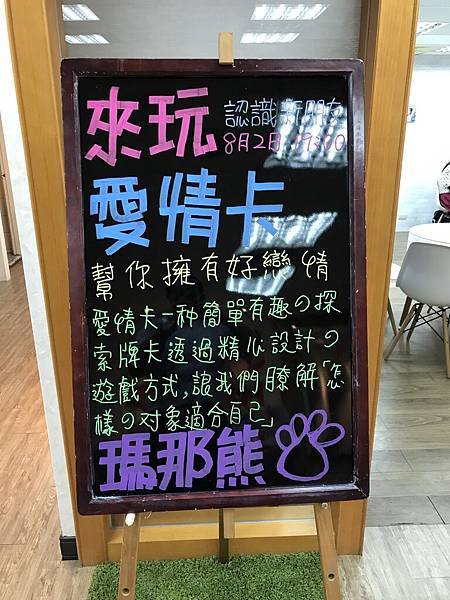 來玩
認識新朋友
8月2日 19:00
愛情卡
幫你擁有好戀情
愛情卡一种簡單有趣の探
索牌卡透過精心設計の
遊戲方式,讓我們瞭解「怎
樣の对象適合自己」
瑪那熊